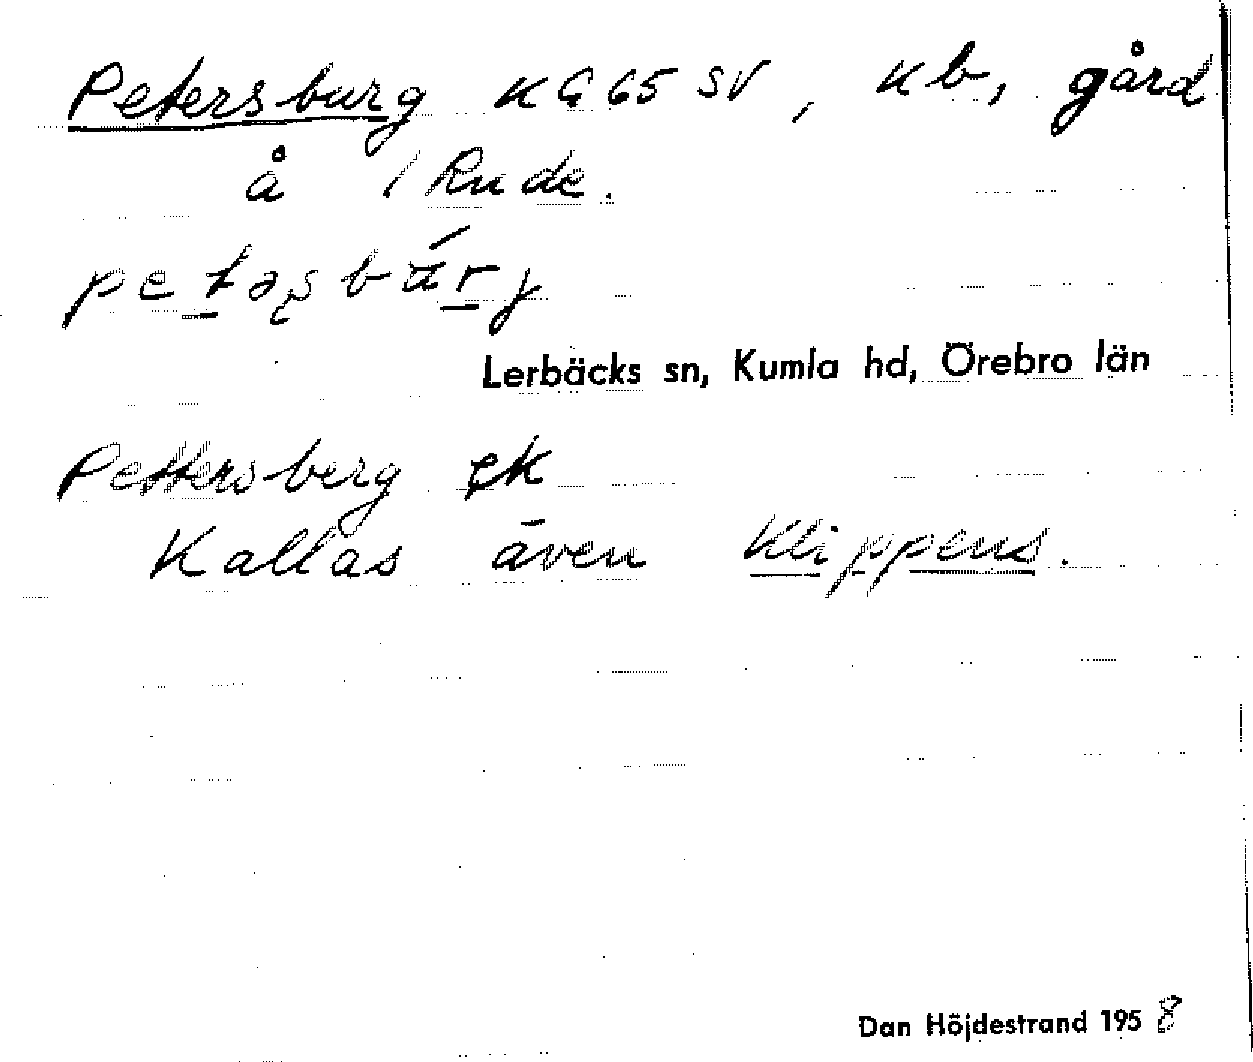 Petersburg KG 65 SV, kb, gård
å 1 Rude.
petəʂbárj
Lerbäcks sn, Kumla hd, Örebro län
Pettersberg ek
Kallas även Klippens.
Dan Höjdestrand 1958